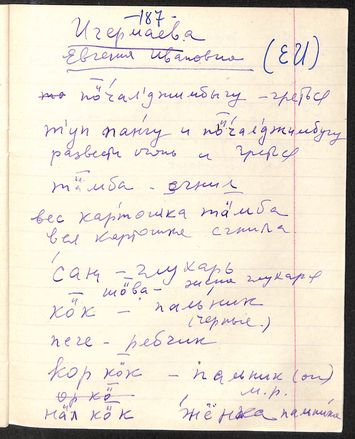 -187-
Ичермаева
Евгения Ивановна (ЕИ)
пӧ̄чалджимбыгу - греться
тӱп паңгу и пӧ̄ча́лджимбугу
развести огонь и греться
тӓ̄мба - сгнил
вес картошка тӓ̄мба
вся картошка сгнила
са́ң - глухарь
тӧва - жена глухаря
кӧ̄к - пальник
(черные.)
пеге - рябчик
кор кӧ̄к - пальник (он)
м.р.
ор кӧ̄
нӓл кӧ̄к жёнка пальника